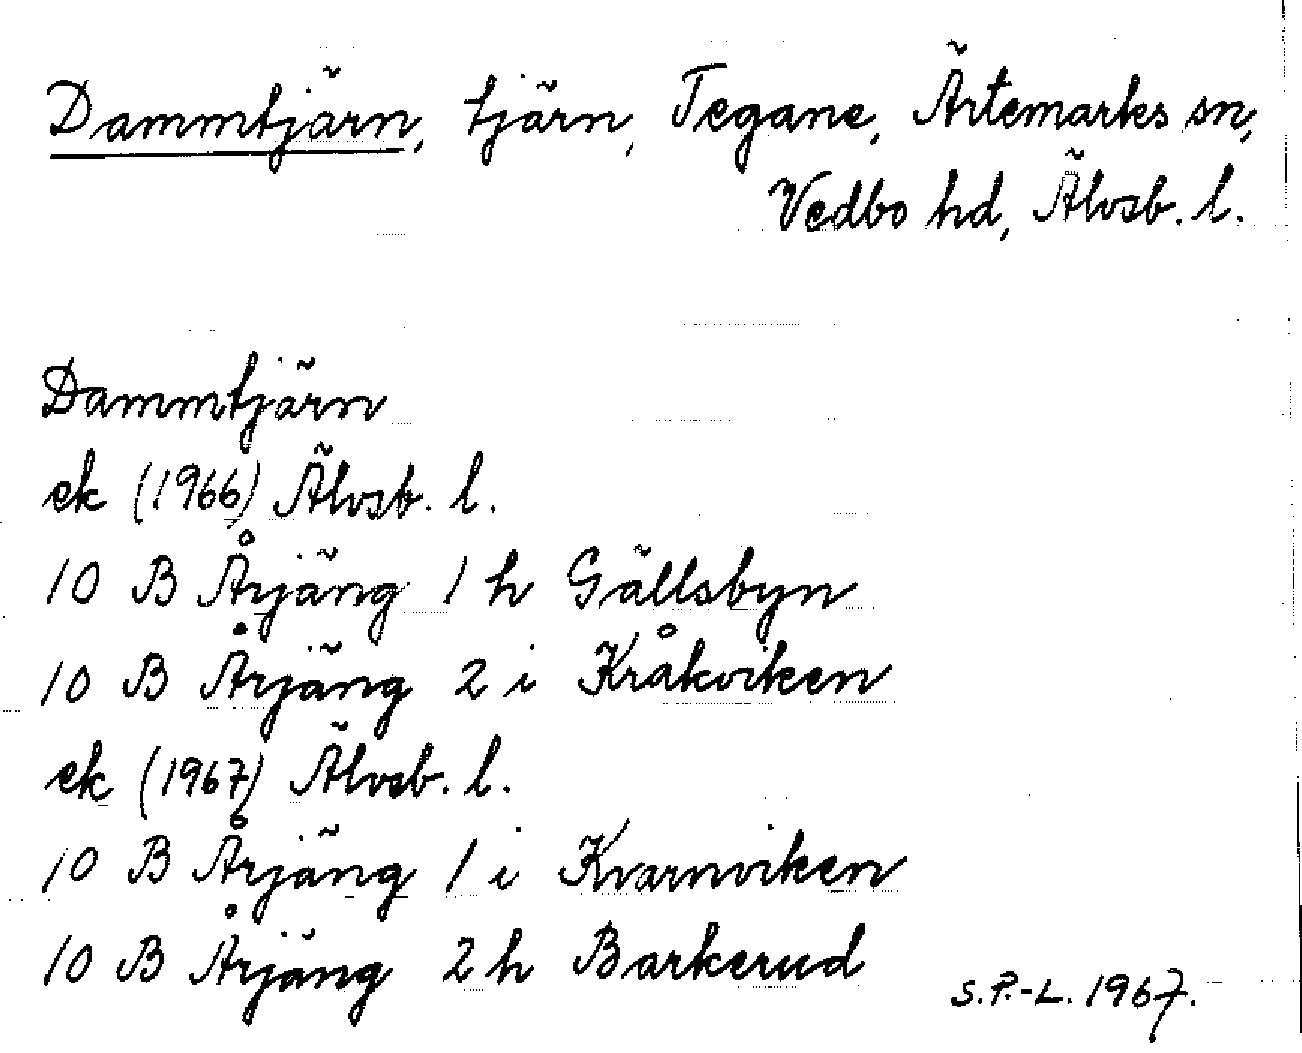 Dammtjärn, tjärn, Tegane, Ärtemarks sn,
Vedbo hd, Älvsb. l.
Dammtjärn
ek (1966) Älvsb. l.
10 B Årjäng 1 h Gällsbyn
10 B Årjäng 2 i Kråkviken
ek (1967) Älvsb. l.
10 B Årjäng 1 i Kvarnviken
10 B Årjäng 2 h Barkerud
S.P.-L. 1967.